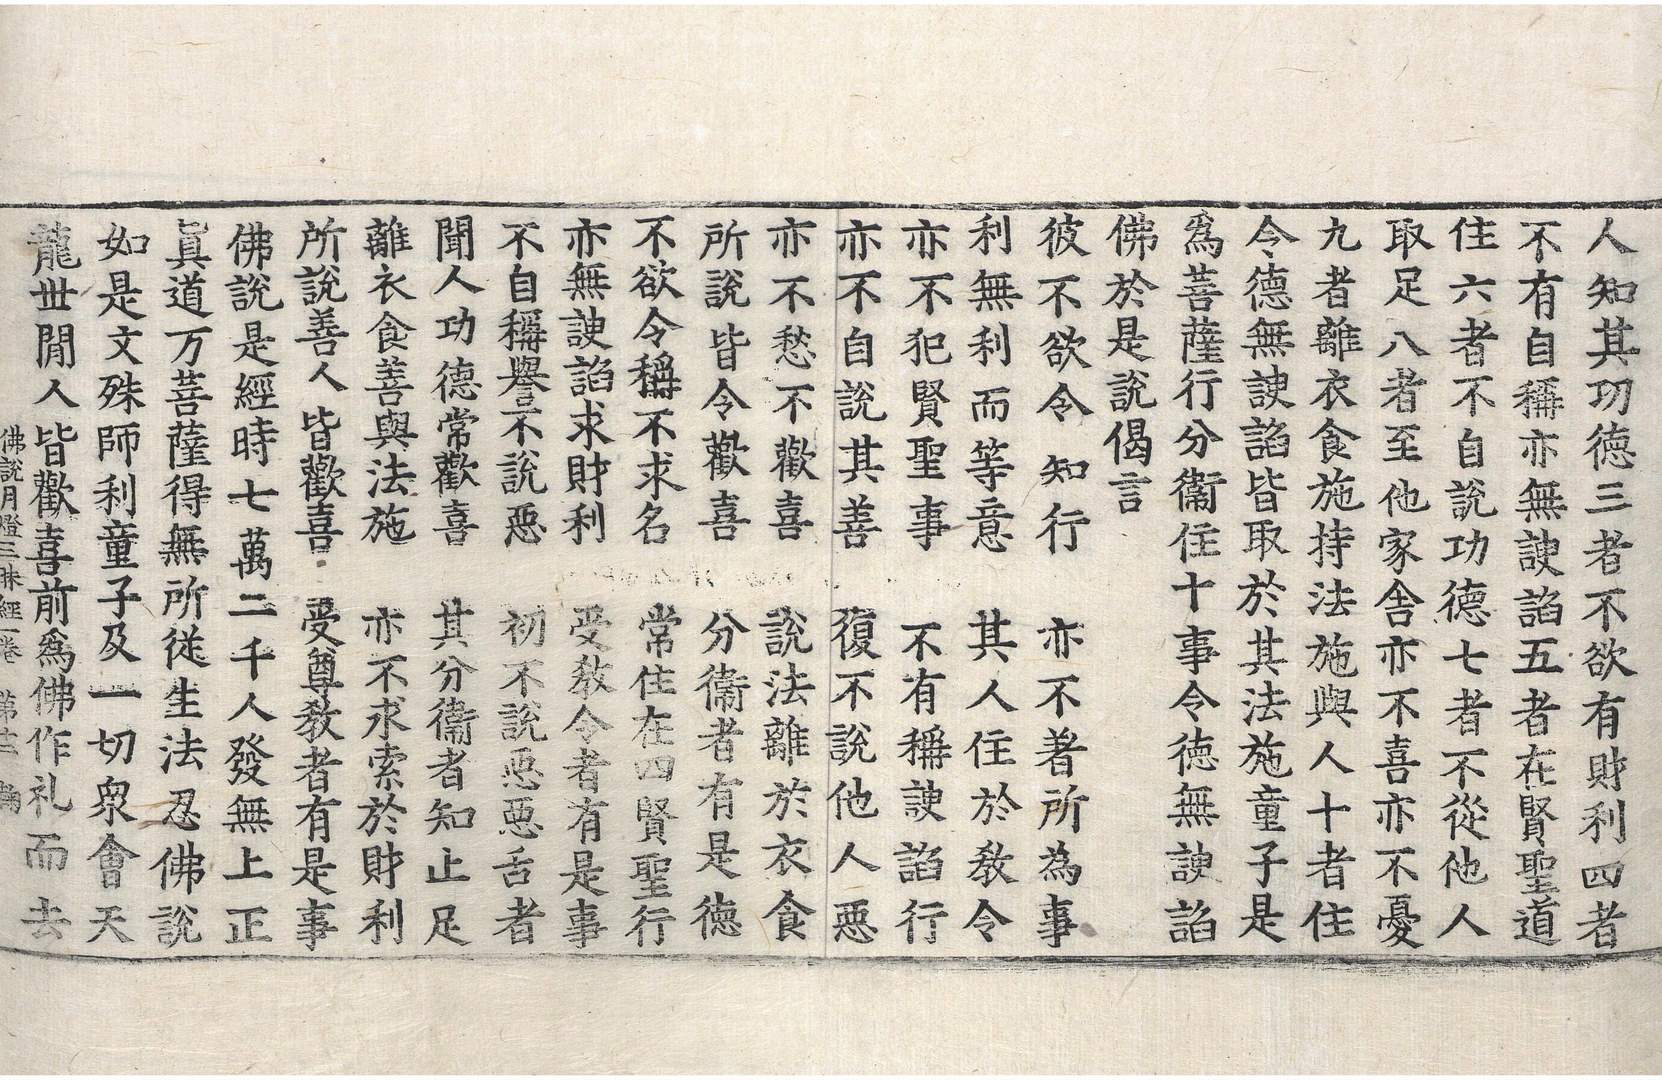 人知其功德三者不欲有財利四者
不有自稱亦無諛諂五者在賢聖道
住六者不自說功德七者不從他人
取足八者至他家舍亦不喜亦不憂
九者離衣食施持法施與人十者住
令德無諛諂皆取於其法施童子是
為菩薩行分衞住十事令德無諛諂
佛於是說偈言
彼不欲令知行　亦不著所為事
利無利而等意　其人住於教令
亦不犯賢聖事　不有稱諛諂行
亦不自說其善　復不說他人惡
亦不愁不歡喜　說法離於衣食
所說皆令歡喜　分衞者有是德
不欲令稱不求名　常住在四賢聖行
亦無諛諂求財利　受教令者有是事
不自稱譽不說惡　初不說惡惡舌者
聞人功德常歡喜　其分衞者知止足
離衣食善與法施　亦不求索於財利
所說善人皆歡喜　受尊教者有是事
佛說是經時七萬二千人發無上正
真道万菩薩得無所從生法忍佛說
如是文殊師利童子及一切衆會天
龍世閒人皆歡喜前為佛作礼而去
佛說月燈三昧經一卷　第十二